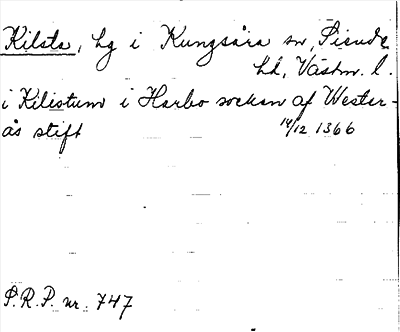 Kilsta, by i Kungsåra sn, Siende
hd, Västm. l.
i Kilistum i Harbo socken af Wester-
ås stift 14/12 1366
S.R.P. nr. 747